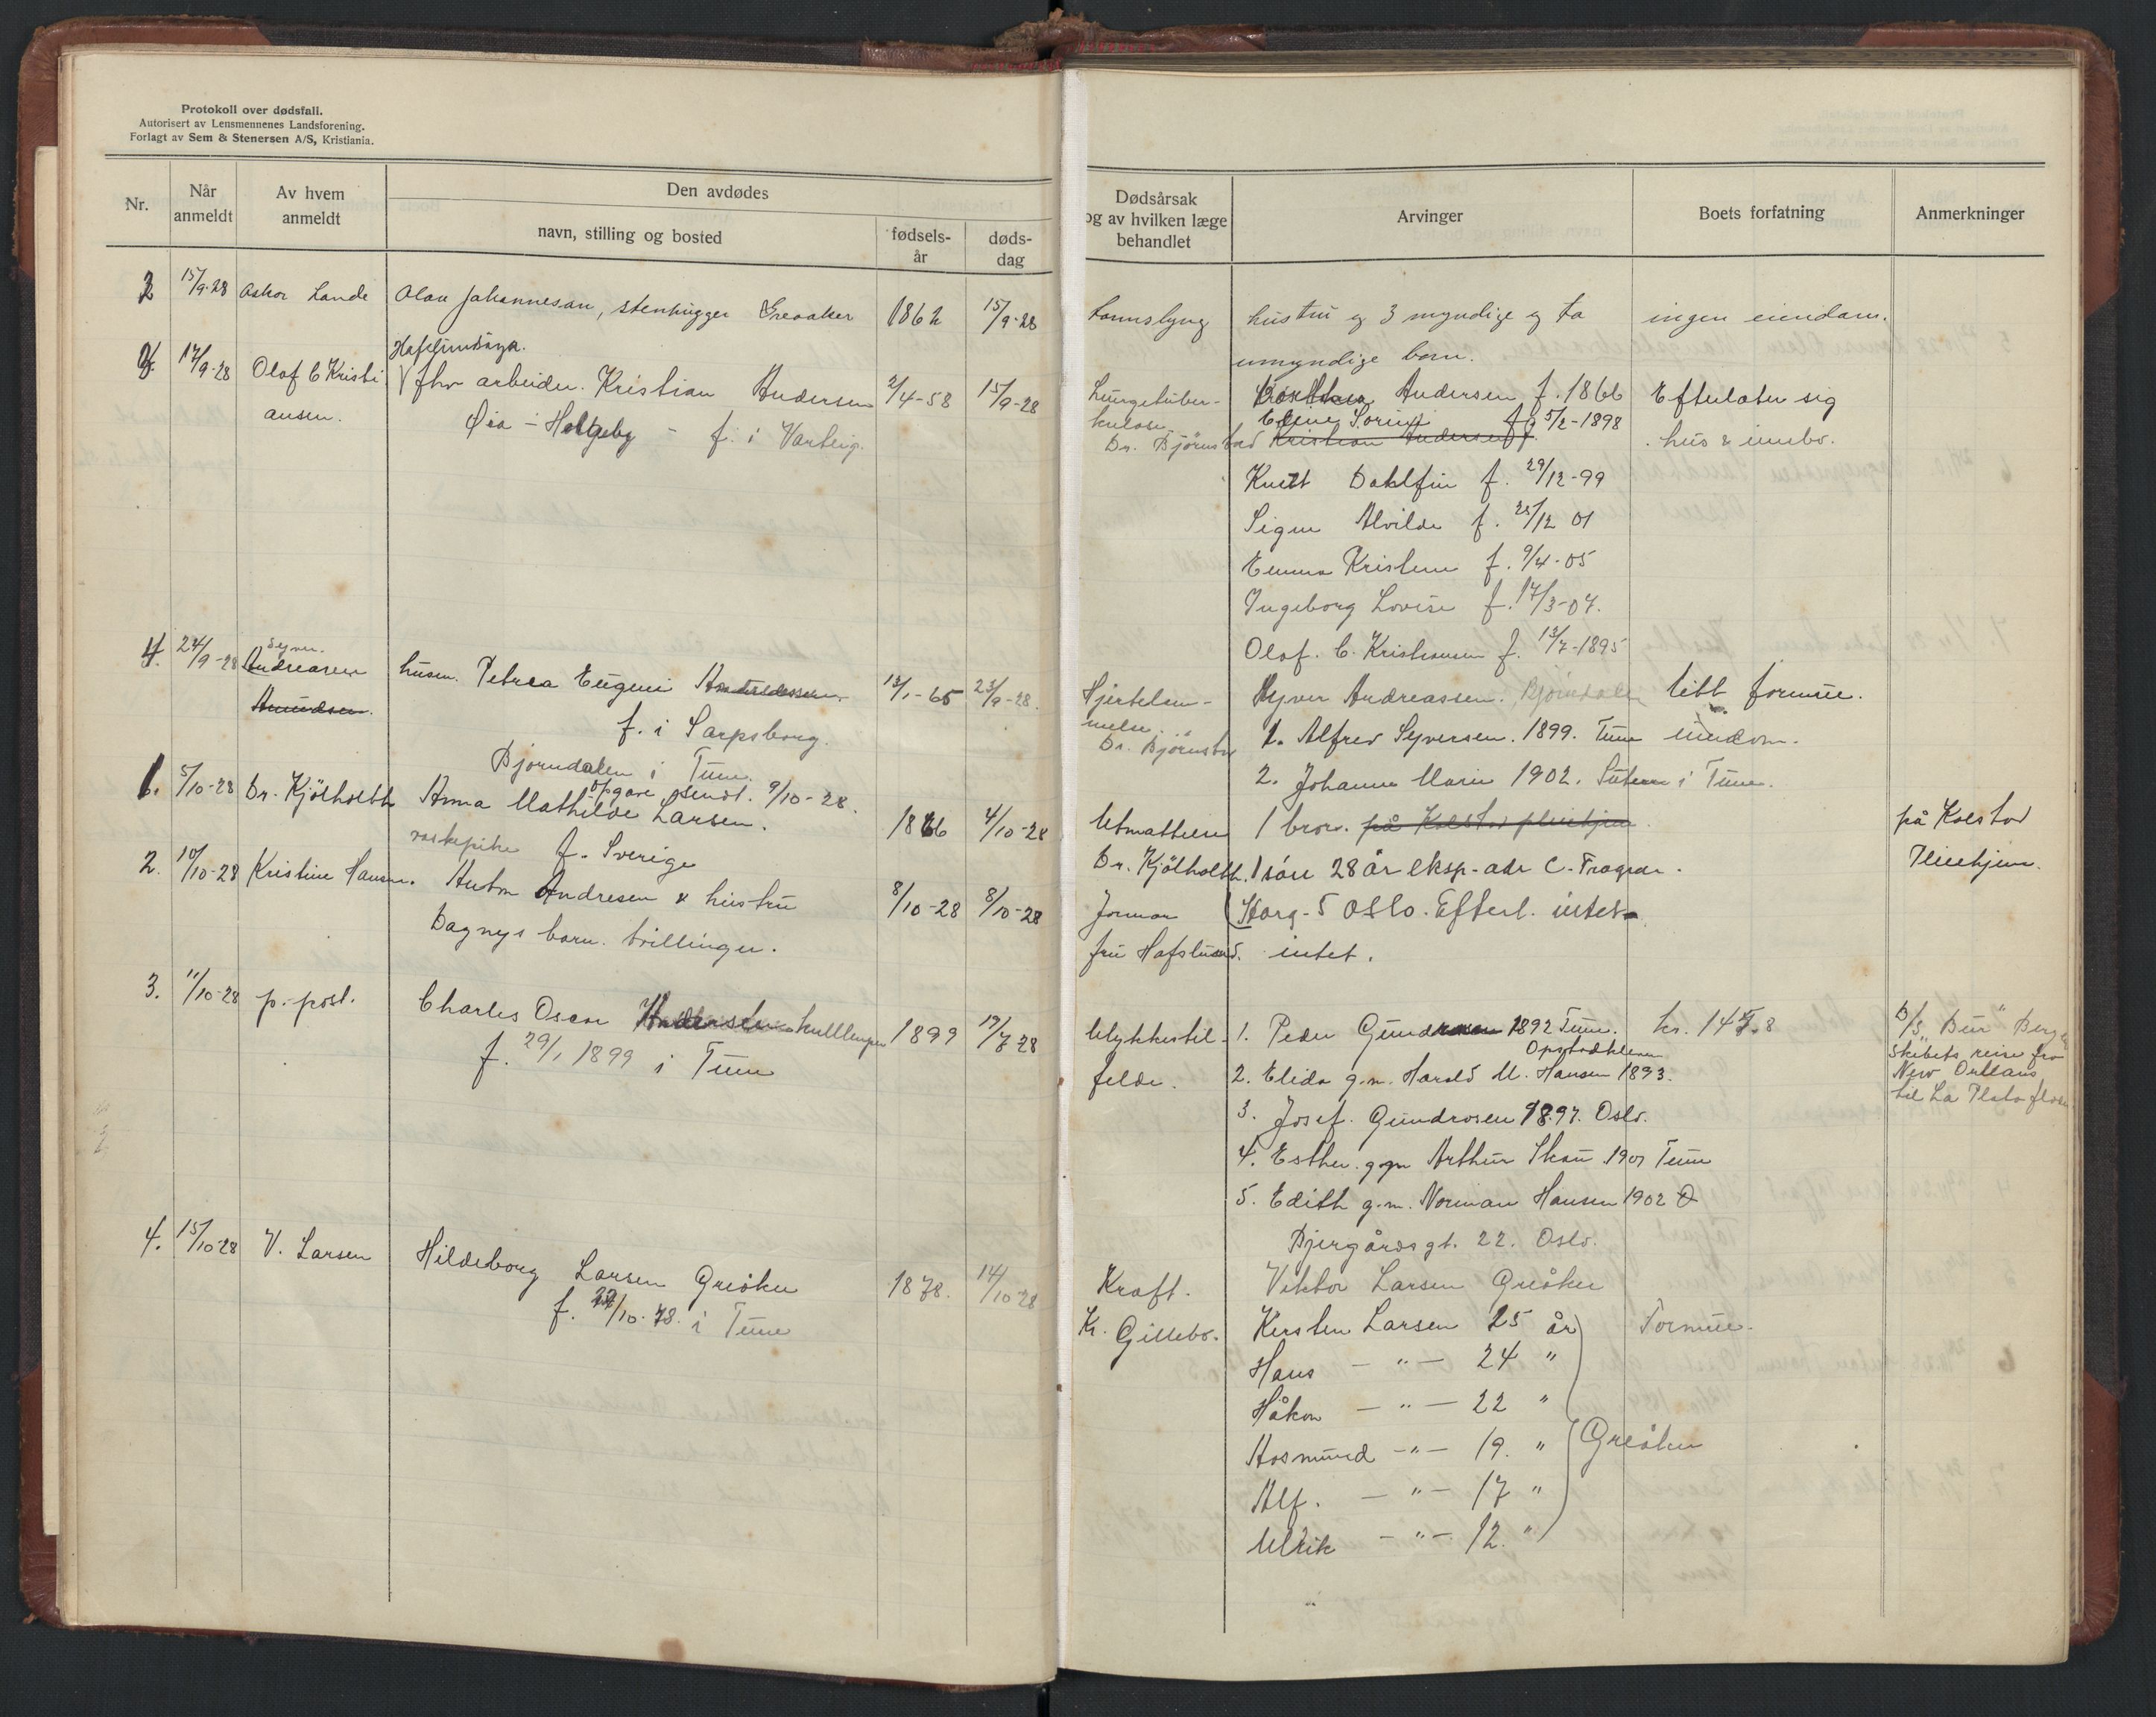 Protokoll over dødsfall.
Autorisert av Lensmennenes Landsforening.
Forlagt av Sem & Stenersen A/S, Kristiania.
Nr.
Når anmeldt
Av hvem anmeldt
Den avdødes
navn, stilling og bosted
fødsels-år
døds-dag
Dødsårsak
og av hvilken læge
behandlet
Arvinger
Boets forfatning
Anmerkninger
15/9-28 Lande Olau Johannesan, stenhugger Greaaker 1862 15/9-28
hustru og 3 myndige og to ingen eiendom.
umyndige barn.
17/9-28 Olaf C Kristi
ansen.
fhv arbeider. Kristian Andersen 2/4-58 15/9-28
Øia - - f. i Varteig.
Lungetuber-
kulose
Dr. Bjørnstad
Andersen f. 1866 Efterlater sig
5/2-1898 hus & innbo.
Kristian Andersen f.
Knut Dahlfin f. 29/12-99
Signe Alvilde f. 12 01
Emma f. 9/4-05
Ingeborg Lovise f. 17/3-07.
Olaf. C. Kristiansen f. 13/7-1895
4. 24/9-28 Syver.
Andreasen
Amundsen.
husm. Petrea Eugeni 12/1-65 23/9-28.
f. i Sarpsborg.
Bjørndalen i Tune.
opgave sendt. 9/10-28.
Dr. Bjørnstad
Syver Andreassen. Bjørndalen litt formue.
1. Alfred Syversen. 1899. Tune eiendom.
2. Johanne Marie 1902. i Tune.
1. 5/10-28 Dr. Kjölholdt Anna Mathilde Larsen. 1866 4/10-28
f. Sverige
Dr. Kjölholdt.
1 bror. på Kolstad pleiehjem
på Kolstad
Pleiehjem.
1 sön 28 år eksp. adr C.
Storg. 5 Oslo. Efterl. intet.
2. 10/10-28 Kristine Hansen. Anton Andresen & hustru 8/10-28 8/10-28
Dagnys barn. tvillinger.
Jormor
fru Hafslund. intet.
3. 11/10-28 p. post. Charles Oscar 1899 19/7-28
f. 29/1 1899 i Tune
Ulykkestil-
felde.
1. Peder 1892 Tune.
Opstadkleven
2. Elida g.m. Harald M. Hansen 1893.
3. Josef. Gundrosen 1897. Oslo.
4. Esther g.m. Arthur Skau 1901 Tune
5. Edith g.m. Norman Hansen 1902
Bjergårdsgt. 22. Oslo.
D/S "Bur" Bergen
Skibets reise fra
New Orleans
til La Plata
4. 15/10-28 V. Larsen Hildeborg Larsen Greåker 1878. 14/10-28
f. /10. 78. i Tune
Kræft.
Kr. Gillebo.
Viktor Larsen Greåker
Kersten Larsen 25 år Formue.
Hans - " - 24 "
Håkon - " - 22 "
Aasmund - " - 19. " Greåker
Alf. - " - 17 "
Ulrik - " - 12. "